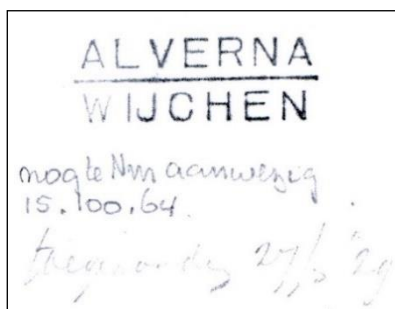 ALVERNA
WIJCHEN
nog te Nm aanwezig
15.100.64.
27/5 29